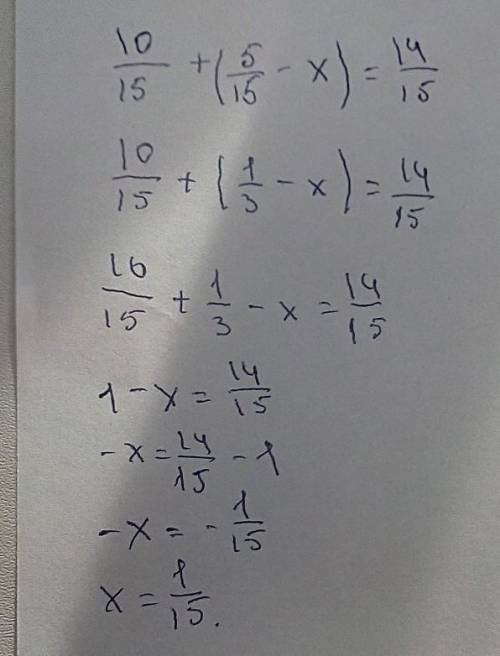 10/15 + (5/15 - x) = 14/15
10/15 + (1/3 - x) = 14/15
10/15 + 1/3 - x = 14/15
1 - x = 14/15
-x = 14/15 - 1
-x = - 1/15
x = 1/15.